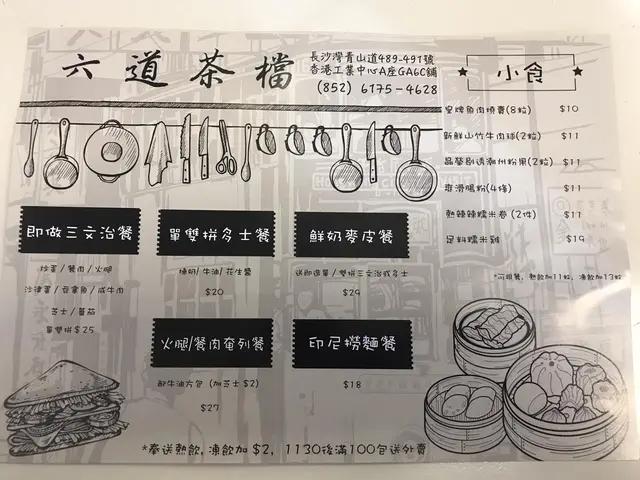 六道茶檔
長沙灣青山道489-491號
香港工業中心A座GA6C舖
(852) 6175-4628
小食
皇牌魚肉燒賣(8粒) $10
新鮮山竹牛肉球(2粒) $11
晶瑩剔透潮州粉果(2粒) $11
爽滑腸粉(4條) $11
熱辣辣糯米卷(2件) $11
足料糯米雞 $19
*可跟餐, 熱飲加11蚊, 凍飲加13蚊
即做三文治餐
炒蛋/餐肉/火腿
沙律蛋/吞拿魚/咸牛肉
芝士/蕃茄
單雙拼$25
單雙拼多士餐
煉奶/牛油/花生醬
$20
鮮奶麥皮餐
送即邊單/雙拼三文治或多士
$29
火腿/餐肉奄列餐
配牛油方包 (加芝士$2)
$27
印尼撈麵餐
$18
*奉送熱飲, 凍飲加$2, 1130後滿100包送外賣